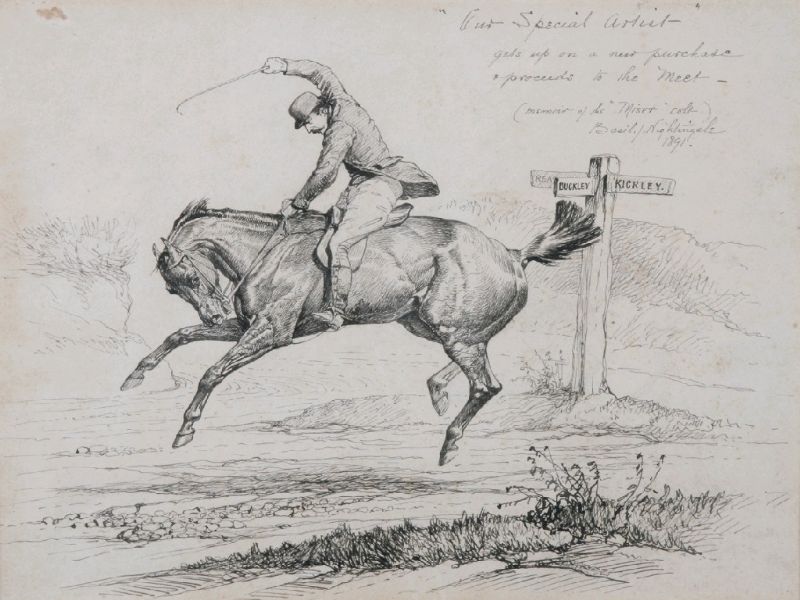 "Our Special Artist"
gets up on a new purchase
& proceeds to the Meet —
(memoir of the "Miser" colt)
Basil J Nightingale
1891.
REA
BUCKLEY
KICKLEY.